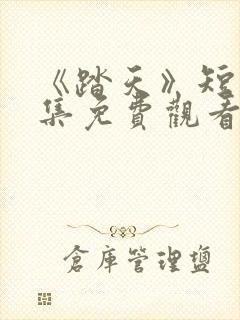 《踏天》短
集免費觀看
倉庫管理鹽